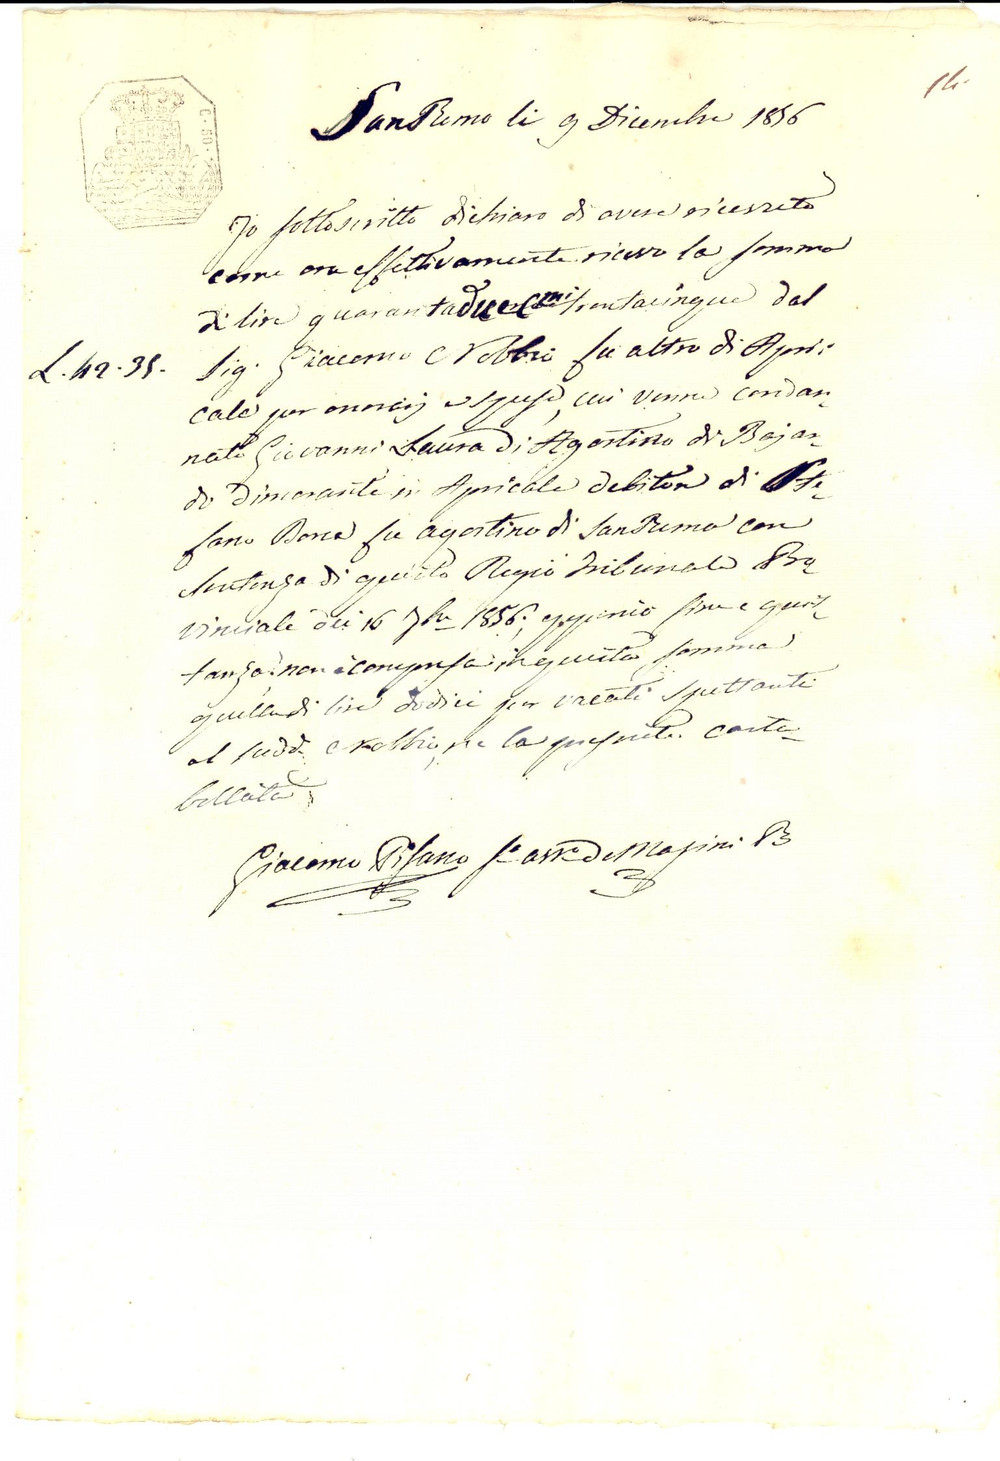 14.
C. 50.
SanRemo li 9 Dicembre 1856
Io sottoscritto dichiaro di avere ricevuto
come ora effettivamente ricevo la somma
di lire quarantadue Cmi trentacinque dal
L. 42. 35.
Sig. Giacomo Nobbio fu altro di Apri-
cale per onorarj e spese, cui venne condan-
nato Giovanni Laura di Agostino di Bajar-
do dimorante in Apricale debitore di Ste-
fano Bona fu Agostino di SanRemo con
Sentenza di questo Regio Tribunale Pro-
vinciale dei 16 7bre 1856; eppercio fine e quit-
tanza: non è compresa in questa somma
quella di lire dodici per vacati spettanti
al sudd. Nobbio, ne la presente carta
bollata;
Giacomo Pisano